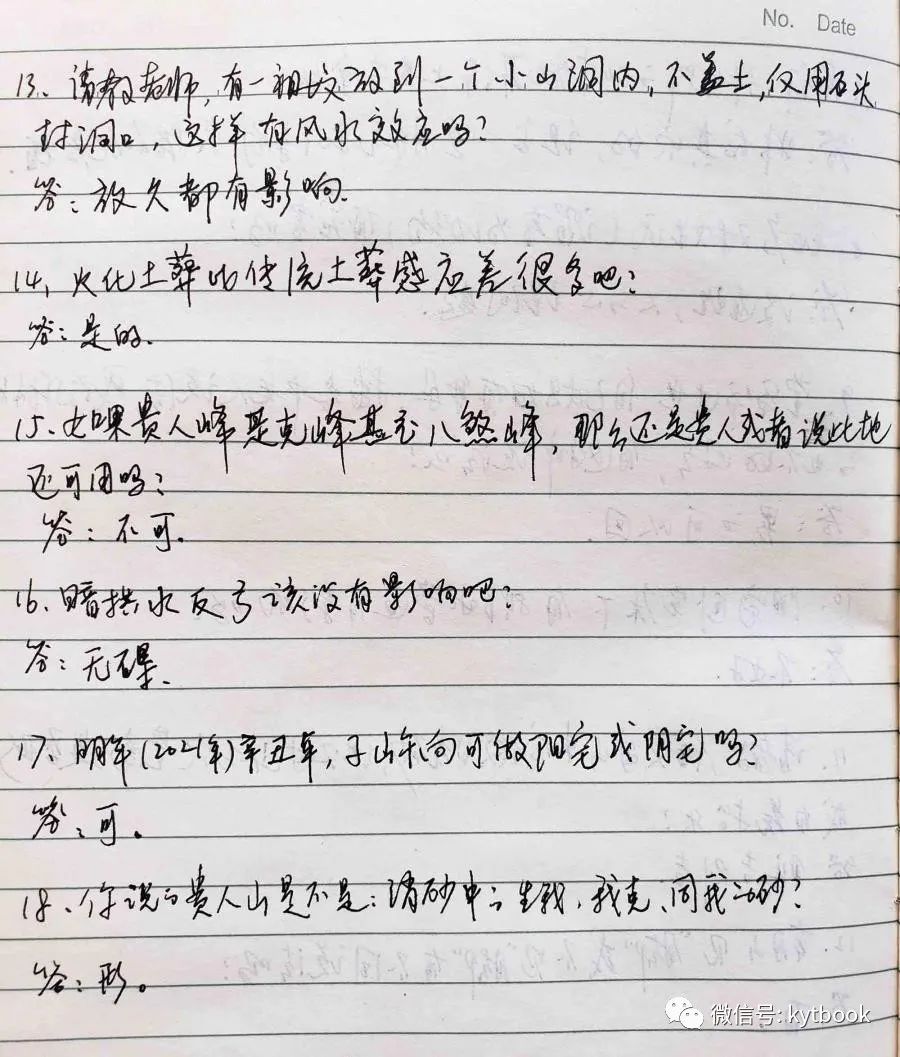 No. Date
13、请教老师,有一祖坟放到一个小山洞内,不盖土,仅用石头
封洞口,这样有风水效应吗?
答:放久都有影响.
14、火化土葬比传统土葬感应差很多吧?
答:是的.
15、如果贵人峰是克峰甚至八煞峰,那么还是贵人或者说此地
还可用吗?
答:不可。
16、暗拱水反弓该没有影响吧?
答:无碍.
17、明年(2021年)辛丑年,子山午向可做阳宅或阴宅吗?
答:可。
18、你说的贵人山是不是:消砂中的生我、我克、同我的砂?
答:形。
微信号: kytbook